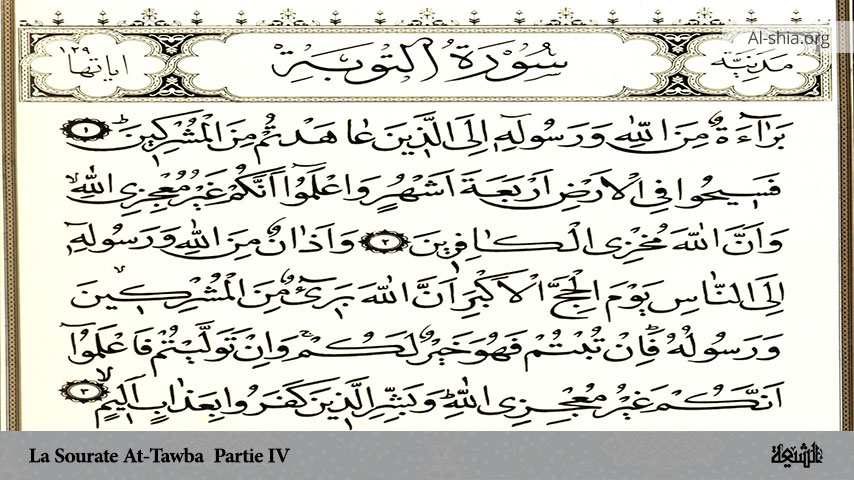 Al-shia.org
مدنية
سُورَةُ التَّوبَةِ
اياتها ١٢٩
بَرَآءَةٌ مِنَ اللّٰهِ وَرَسُولِهٖٓ اِلَى الَّذِينَ عَاهَدْتُمْ مِنَ الْمُشْرِكِينَ ۜ ١
فَسِيحُوا فِى الْاَرْضِ اَرْبَعَةَ اَشْهُرٍ وَاعْلَمُٓوا اَنَّكُمْ غَيْرُ مُعْجِزِى اللّٰهِ
وَاَنَّ اللّٰهَ مُخْزِى الْكَافِرِينَ ٢ وَاَذَانٌ مِنَ اللّٰهِ وَرَسُولِهٖٓ
اِلَى النَّاسِ يَوْمَ الْحَجِّ الْاَكْبَرِ اَنَّ اللّٰهَ بَرِىٓءٌ مِنَ الْمُشْرِكِينَ
وَرَسُولُهُ فَاِنْ تُبْتُمْ فَهُوَ خَيْرٌ لَكُمْ وَاِنْ تَوَلَّيْتُمْ فَاعْلَمُٓوا
اَنَّكُمْ غَيْرُ مُعْجِزِى اللّٰهِ وَبَشِّرِ الَّذِينَ كَفَرُوا بِعَذَابٍ اَلِيمٍ ٣
La Sourate At-Tawba Partie IV
الشيعة